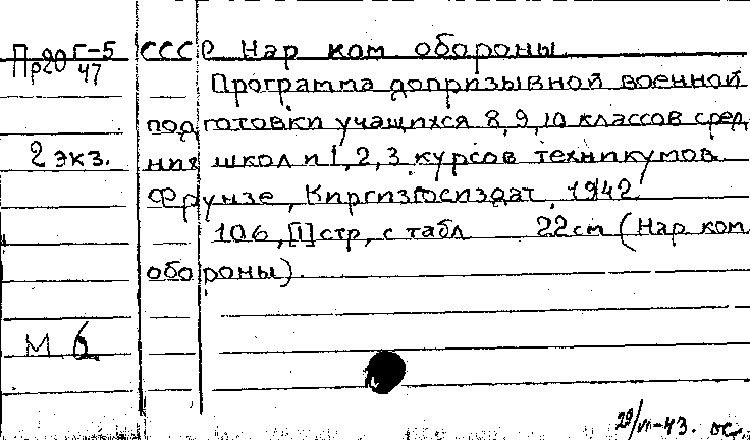 Г-5
Пр20
47
СССР Нар ком обороны
Программа допризывной военной
подготовки учащихся 8, 9, 10 классов сред
2 экз.
них школ и 1, 2, 3 курсов техникумов
Фрунзе, Киргизгосиздат, 1942
106, [1] стр, с табл 22 см (Нар ком
обороны).
М 6
29/VI-43.